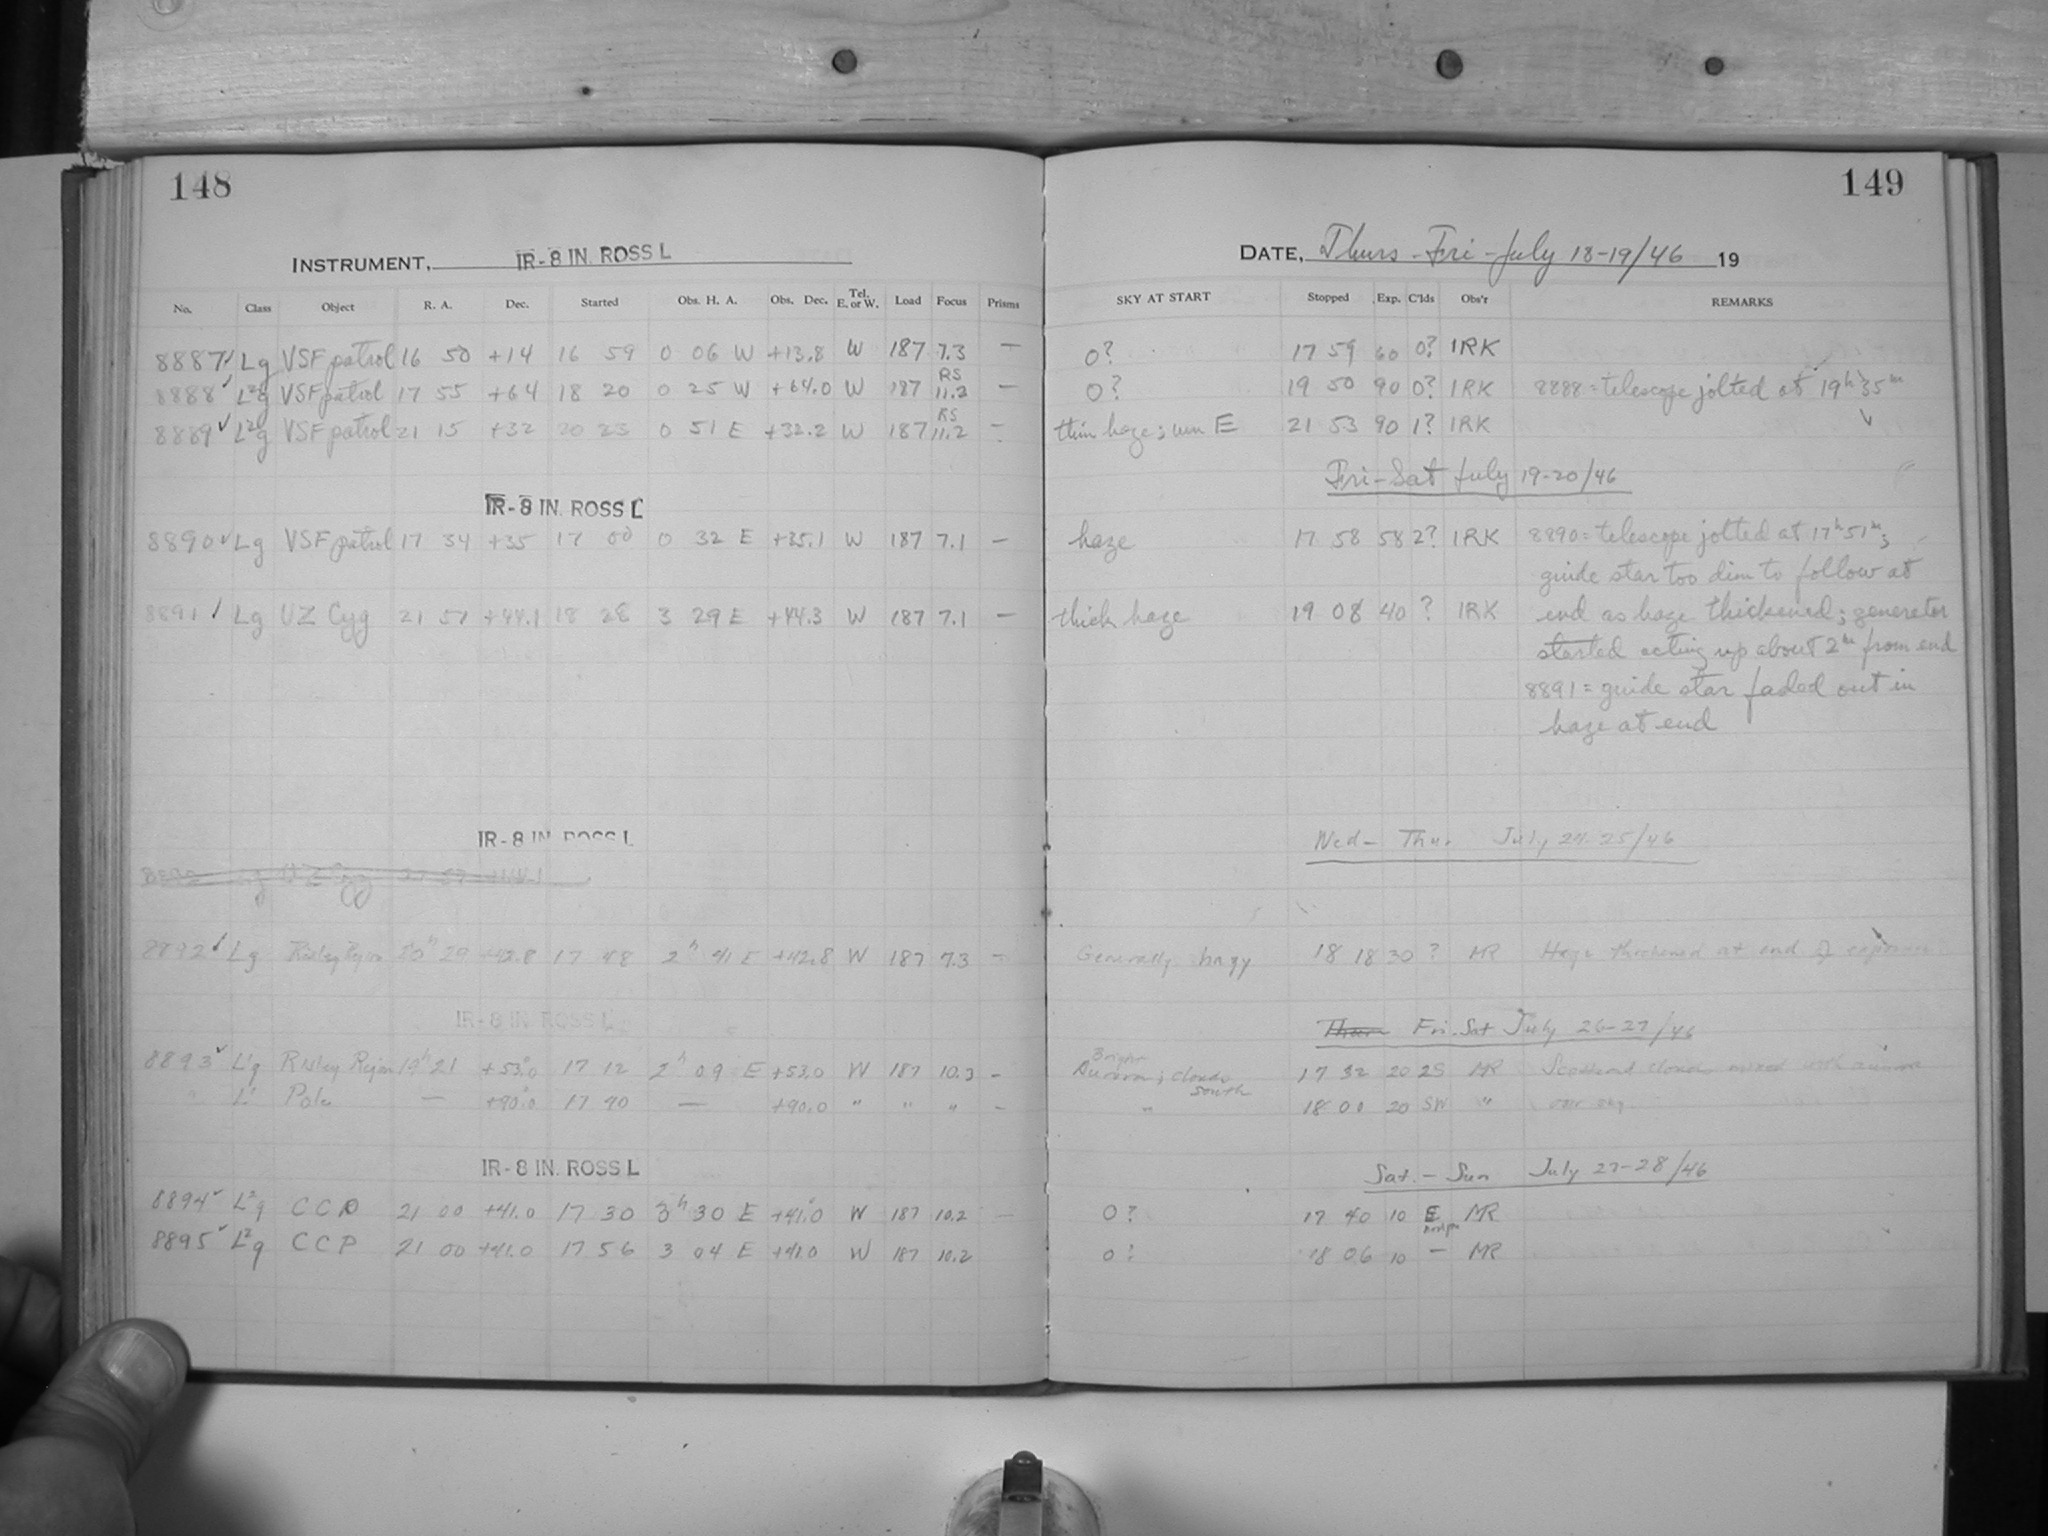 148
INSTRUMENT, IR-8 IN. ROSS L
No. Class Object R. A. Dec. Started Obs. H. A. Obs. Dec. Tel. E. or W. Load Focus Prisms
8887 ✓ Lg VSF patrol 16 50 +14 16 59 0 06 W +13.8 W 187 7.3 —
8888 ✓ L²g VSF patrol 17 55 +64 18 20 0 25 W +64.0 W 187 RS 11.2 —
8889 ✓ L²g VSF patrol 21 15 +32 20 23 0 51 E +32.2 W 187 RS 11.2 —
IR-8 IN. ROSS L
8890 ✓ Lg VSF patrol 17 34 +35 17 00 0 32 E +35.1 W 187 7.1 —
8891 ✓ Lg UZ Cyg 21 57 +44.1 18 28 3 29 E +44.3 W 187 7.1 —
IR-8 IN. ROSS L
Lg UZ Cyg 21 57 +44.1
8892 ✓ Lg Risley Region 20ʰ 29 +42.8 17 48 2ʰ 41 E +42.8 W 187 7.3 —
IR-8 IN ROSS L
8893 ✓ L'g Risley Region 19ʰ 21 +53.0 17 12 2ʰ 09 E +53.0 W 187 10.3 —
" L' Pole — +90.0 17 40 — +90.0 " " " —
IR-8 IN. ROSS L
8894 ✓ L²g CCP 21 00 +41.0 17 30 3ʰ 30 E +41.0 W 187 10.2 —
8895 ✓ L²g CCP 21 00 +41.0 17 56 3 04 E +41.0 W 187 10.2
149
DATE, Thurs - Fri - July 18-19/46 19
SKY AT START Stopped Exp. C'lds Obs'r REMARKS
0? 17 59 60 0? IRK
0? 19 50 90 0? IRK 8888 = telescope jolted at 19ʰ 35ᵐ
thin haze; E 21 53 90 1? IRK
Fri-Sat July 19-20/46
haze 17 58 58 2? IRK 8890 = telescope jolted at 17ʰ 51ᵐ;
guide star too dim to follow at
thick haze 19 08 40 ? IRK end as haze thickened; generator
started acting up about 2ᵐ from end
8891 = guide star faded out in
haze at end
Wed- Thur July 24-25/46
Generally hazy 18 18 30 ? MR Haze thickened at end of exposure
Thur Fri-Sat July 26-27/46
Bright
Aurora; Clouds South 17 32 20 2S MR Scattered clouds mixed with aurora
" 18 00 20 SW " over sky
Sat. - Sun July 27-28/46
0? 17 40 10 E MR
0? 18 06 10 — MR